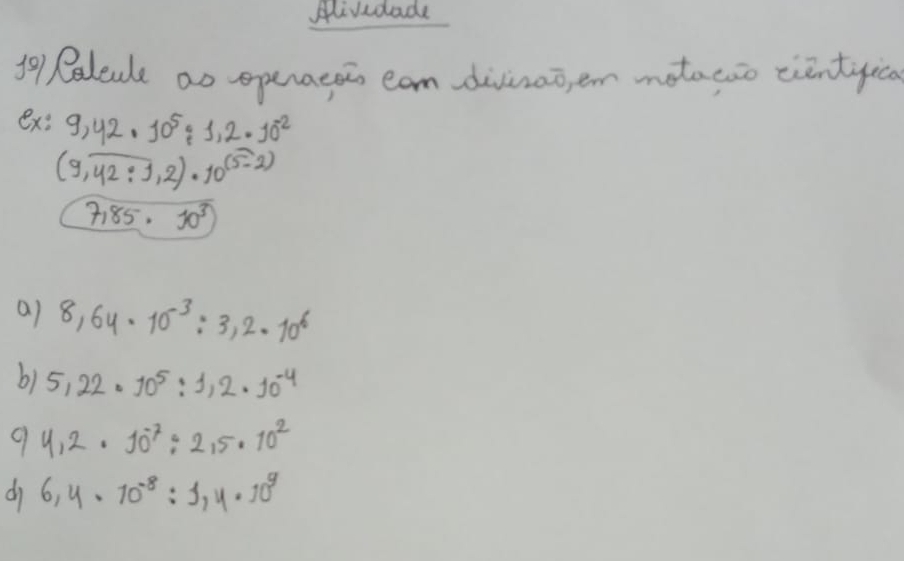 Atividade
1º) Calcule as operações com divisão, em notação científica
ex: 9,42 . 10⁵ : 1,2 . 10²
(9,42 : 1,2) . 10⁽⁵⁻²⁾
7,85 . 10³
a) 8,64 . 10⁻³ : 3,2 . 10⁶
b) 5,22 . 10⁵ : 1,2 . 10⁻⁴
c) 4,2 . 10⁻⁷ : 2,5 . 10²
d) 6,4 . 10⁻⁸ : 1,4 . 10⁹